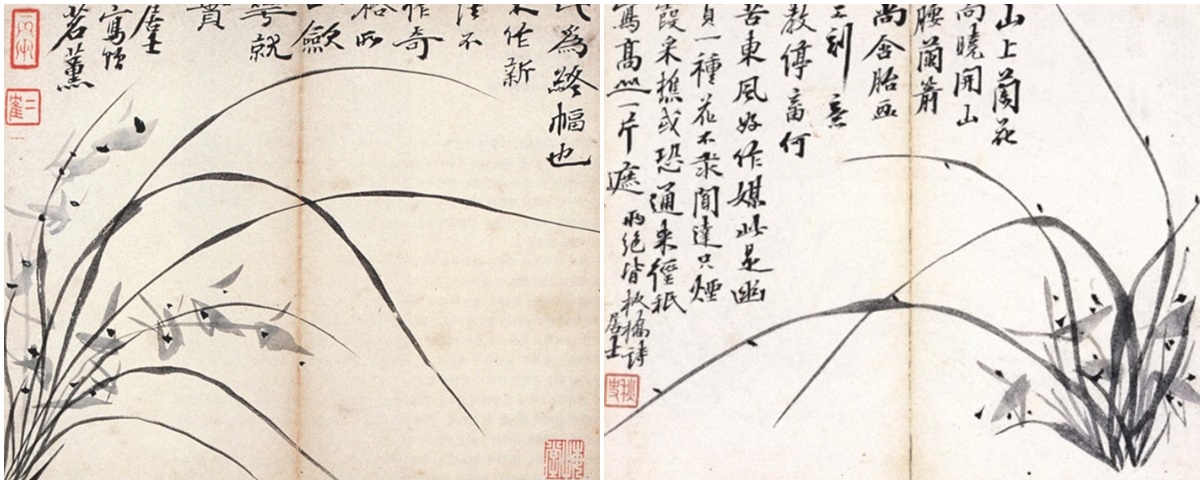 爲終幅也
作新
不
作奇
此
歛
就
實
居士
寫贈
茗薰
山上蘭花
向曉開山
腰蘭箭
尚含胎画
工刻意
教停畜何
苦東風好作媒此是幽
貞一種花不求聞達只煙
霞采樵或恐通來徑祇
寫高山一片遮 兩絕皆板橋詩
居士
秋史